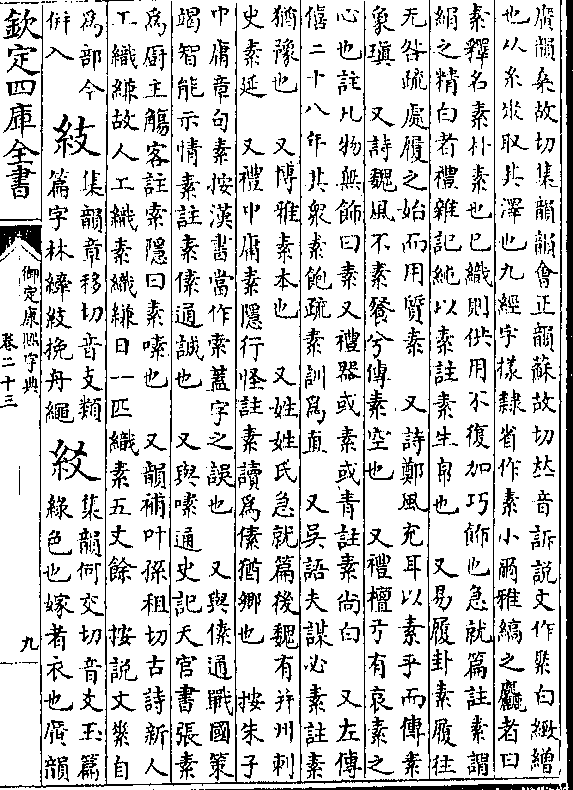 廣韻桑故切集韻韻會正韻蘇故切𠀤音訴說文作𦃃白緻繒
也从糸𠂹取其澤也九經字樣隸省作素小爾雅縞之麤者曰
素釋名素朴素也已織則供用不復加巧飾也急就篇註素謂
絹之精白者禮雜記純以素註素生帛也　又易履卦素履往
无咎疏處履之始而用質素　又詩鄭風充耳以素乎而傳素
象瑱　又詩魏風不素餐兮傳素空也　又禮檀弓有哀素之
心也註凡物無飾曰素又禮器或素或青註素尚白　又左傳
僖二十八年其衆素飽疏素訓爲直　又吳語夫謀必素註素
猶豫也　又博雅素本也　又姓姓氏急就篇後魏有幷州刺
史素延　又禮中庸素隱行怪註素讀爲傃猶鄉也　按朱子
中庸章句素按漢書當作索蓋字之誤也　又與傃通戰國策
竭智能示情素註素傃通誠也　又與嗉通史記天官書張素
爲廚主觴客註索隱曰素嗉也　又韻補叶孫租切古詩新人
工織縑故人工織素織縑日一匹織素五丈餘　按說文𦃃自
爲部今
倂入　紁集韻章移切音支類
篇字林繂紁挽舟繩　紋集韻何交切音爻玉篇
綠色也嫁者衣也廣韻
欽定四庫全書
御定康熙字典
卷二十三
九